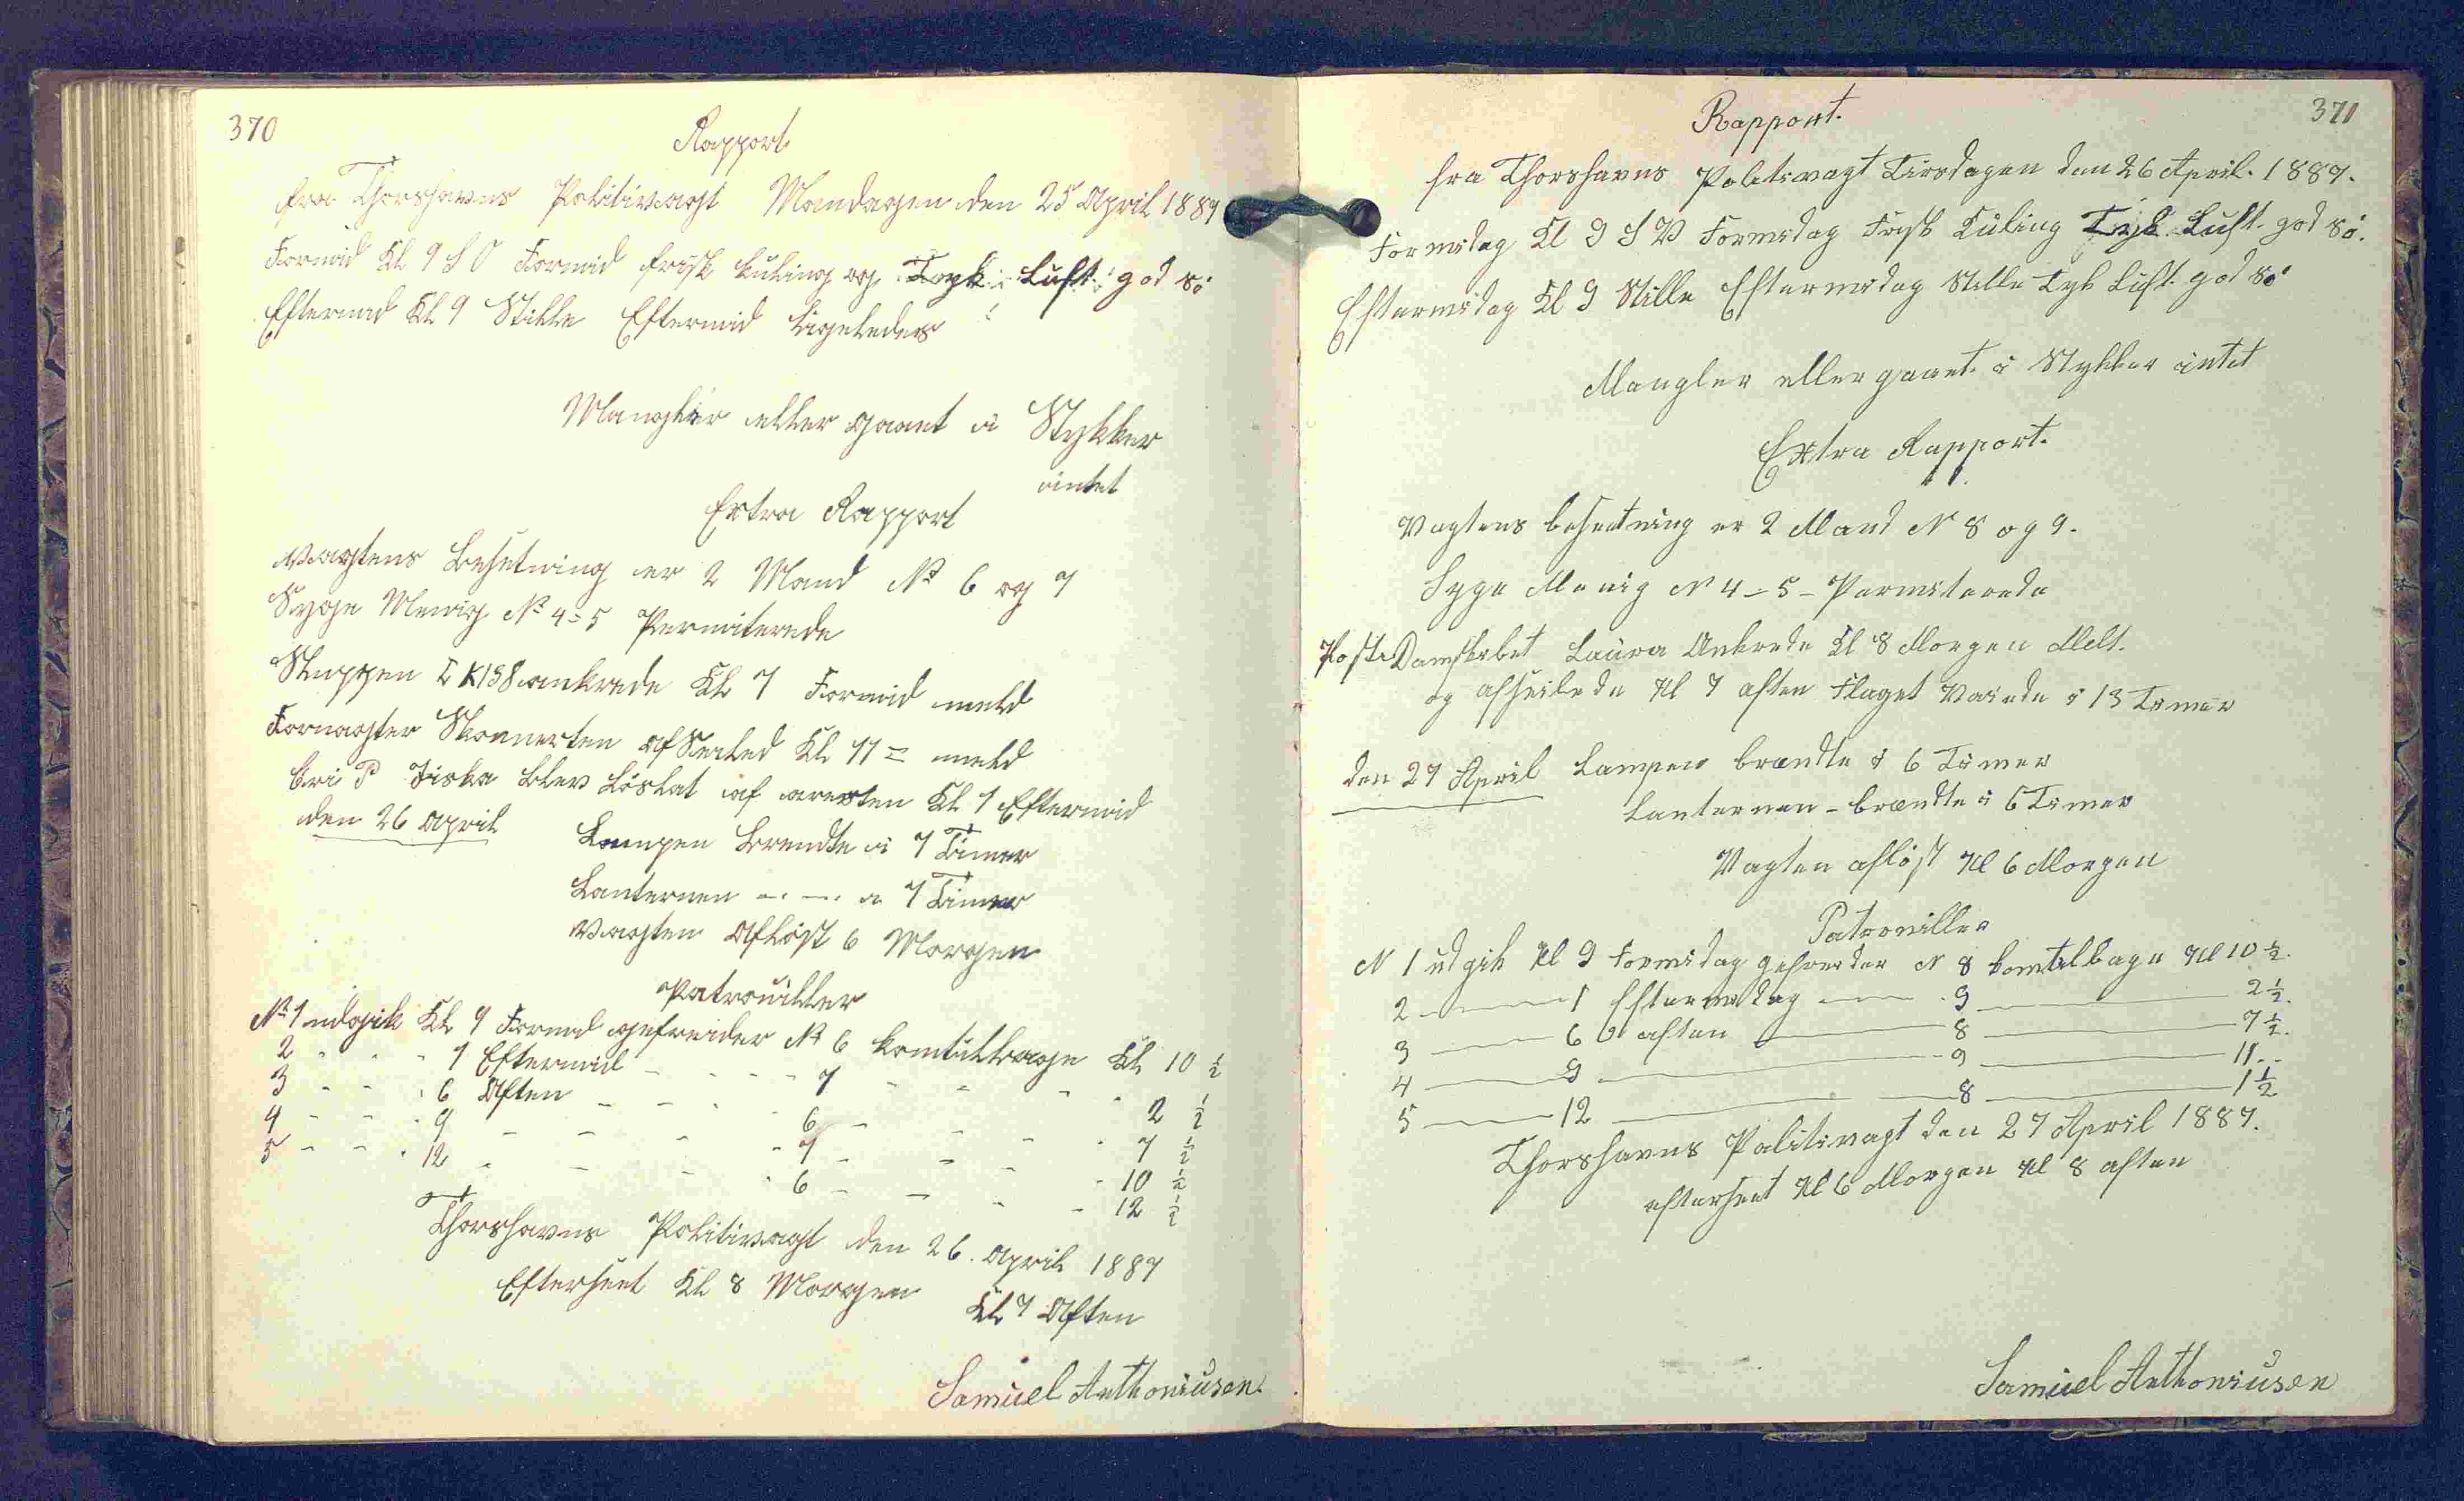 370
Rapport.
fra Thorshavns Politivagt Mandagen den 25 April 1887
Formid Kl 9 S O Formid frisk kuling og Tyk Luft god sö
Eftermid Kl 9 Stille Eftermid Ligeledes
Mangler eller gaaet i Stykker
intet
Extra Rapport
Vagtens Besetning er 2 Mand № 6 og 7
Syge Menig № 4-5 Permiterede
Sluppen ankrede Kl 7 Formid meld
Skonnerten afSeiled Kl 11 = meld
blev Löslat af aresten Kl 1 Eftermid
den 26 April
Lampen Brendte i 7 Timer
Lanternen -.-. i 7 Timer
Vagten Aflöst 6 Morgen
Patrouiller
№ 1 udgik Kl 9 Formid gefreider № 6 komtilbage Kl 10 ½
2 - - - 1 Eftermid - - - - 7 - - - - 2 ½
3 - - - 6 Aften - - - - 6 - - - - 7 ½
4 - - - 9 - - - - 7 - - - - 10 ½
5 - - - 12 - - - - 6 - - - - 12 ½
Thorshavns Politivagt den 26. April 1887
Efterseet Kl 8 Morgen
Kl 7 Aften
Samuel Anthoniusen.
371
Rapport.
fra Thorshavns Politivagt Tirsdagen den 26 April. 1887.
Formidag Kl 9 S V Formidag Frisk Kuling Tyk Luft. god sö.
Eftermidag Kl 9 Stille Eftermidag Stille Tyk Luft. god sö
Mangler eller gaaet i Stykker intet
Extra Rapport.
Vagtens besætning er 2 Mand N 8 og 9.
Syge Menig N 4-5- Permiterede
Post Damskibet Laura Ankrede Kl 8 Morgen Melt.
og afseilede Kl 7 aften Flaget Vaiede i 13 Timer
den 27 April Lampen brændte i 6 Timer
Lanternen - brændte i 6 Timer
Vagten aflöst Kl 6 Morgen
Patrouiller
N 1 udgik Kl 9 Formidag gefreider N 8 komtilbage Kl 10 ½.
2 ——— 1 Eftermidag ——— 9 ——— 2 ½.
3 ——— 6 aften ——— 8 ——— 7 ½.
4 ——— 9 ——— 9 ——— 11 - -
5 ——— 12 ——— 8 ——— 1 ½
Thorshavns Politivagt den 27 April 1887.
efterseet Kl 6 Morgen Kl 8 aften
Samuel Anthoniusen